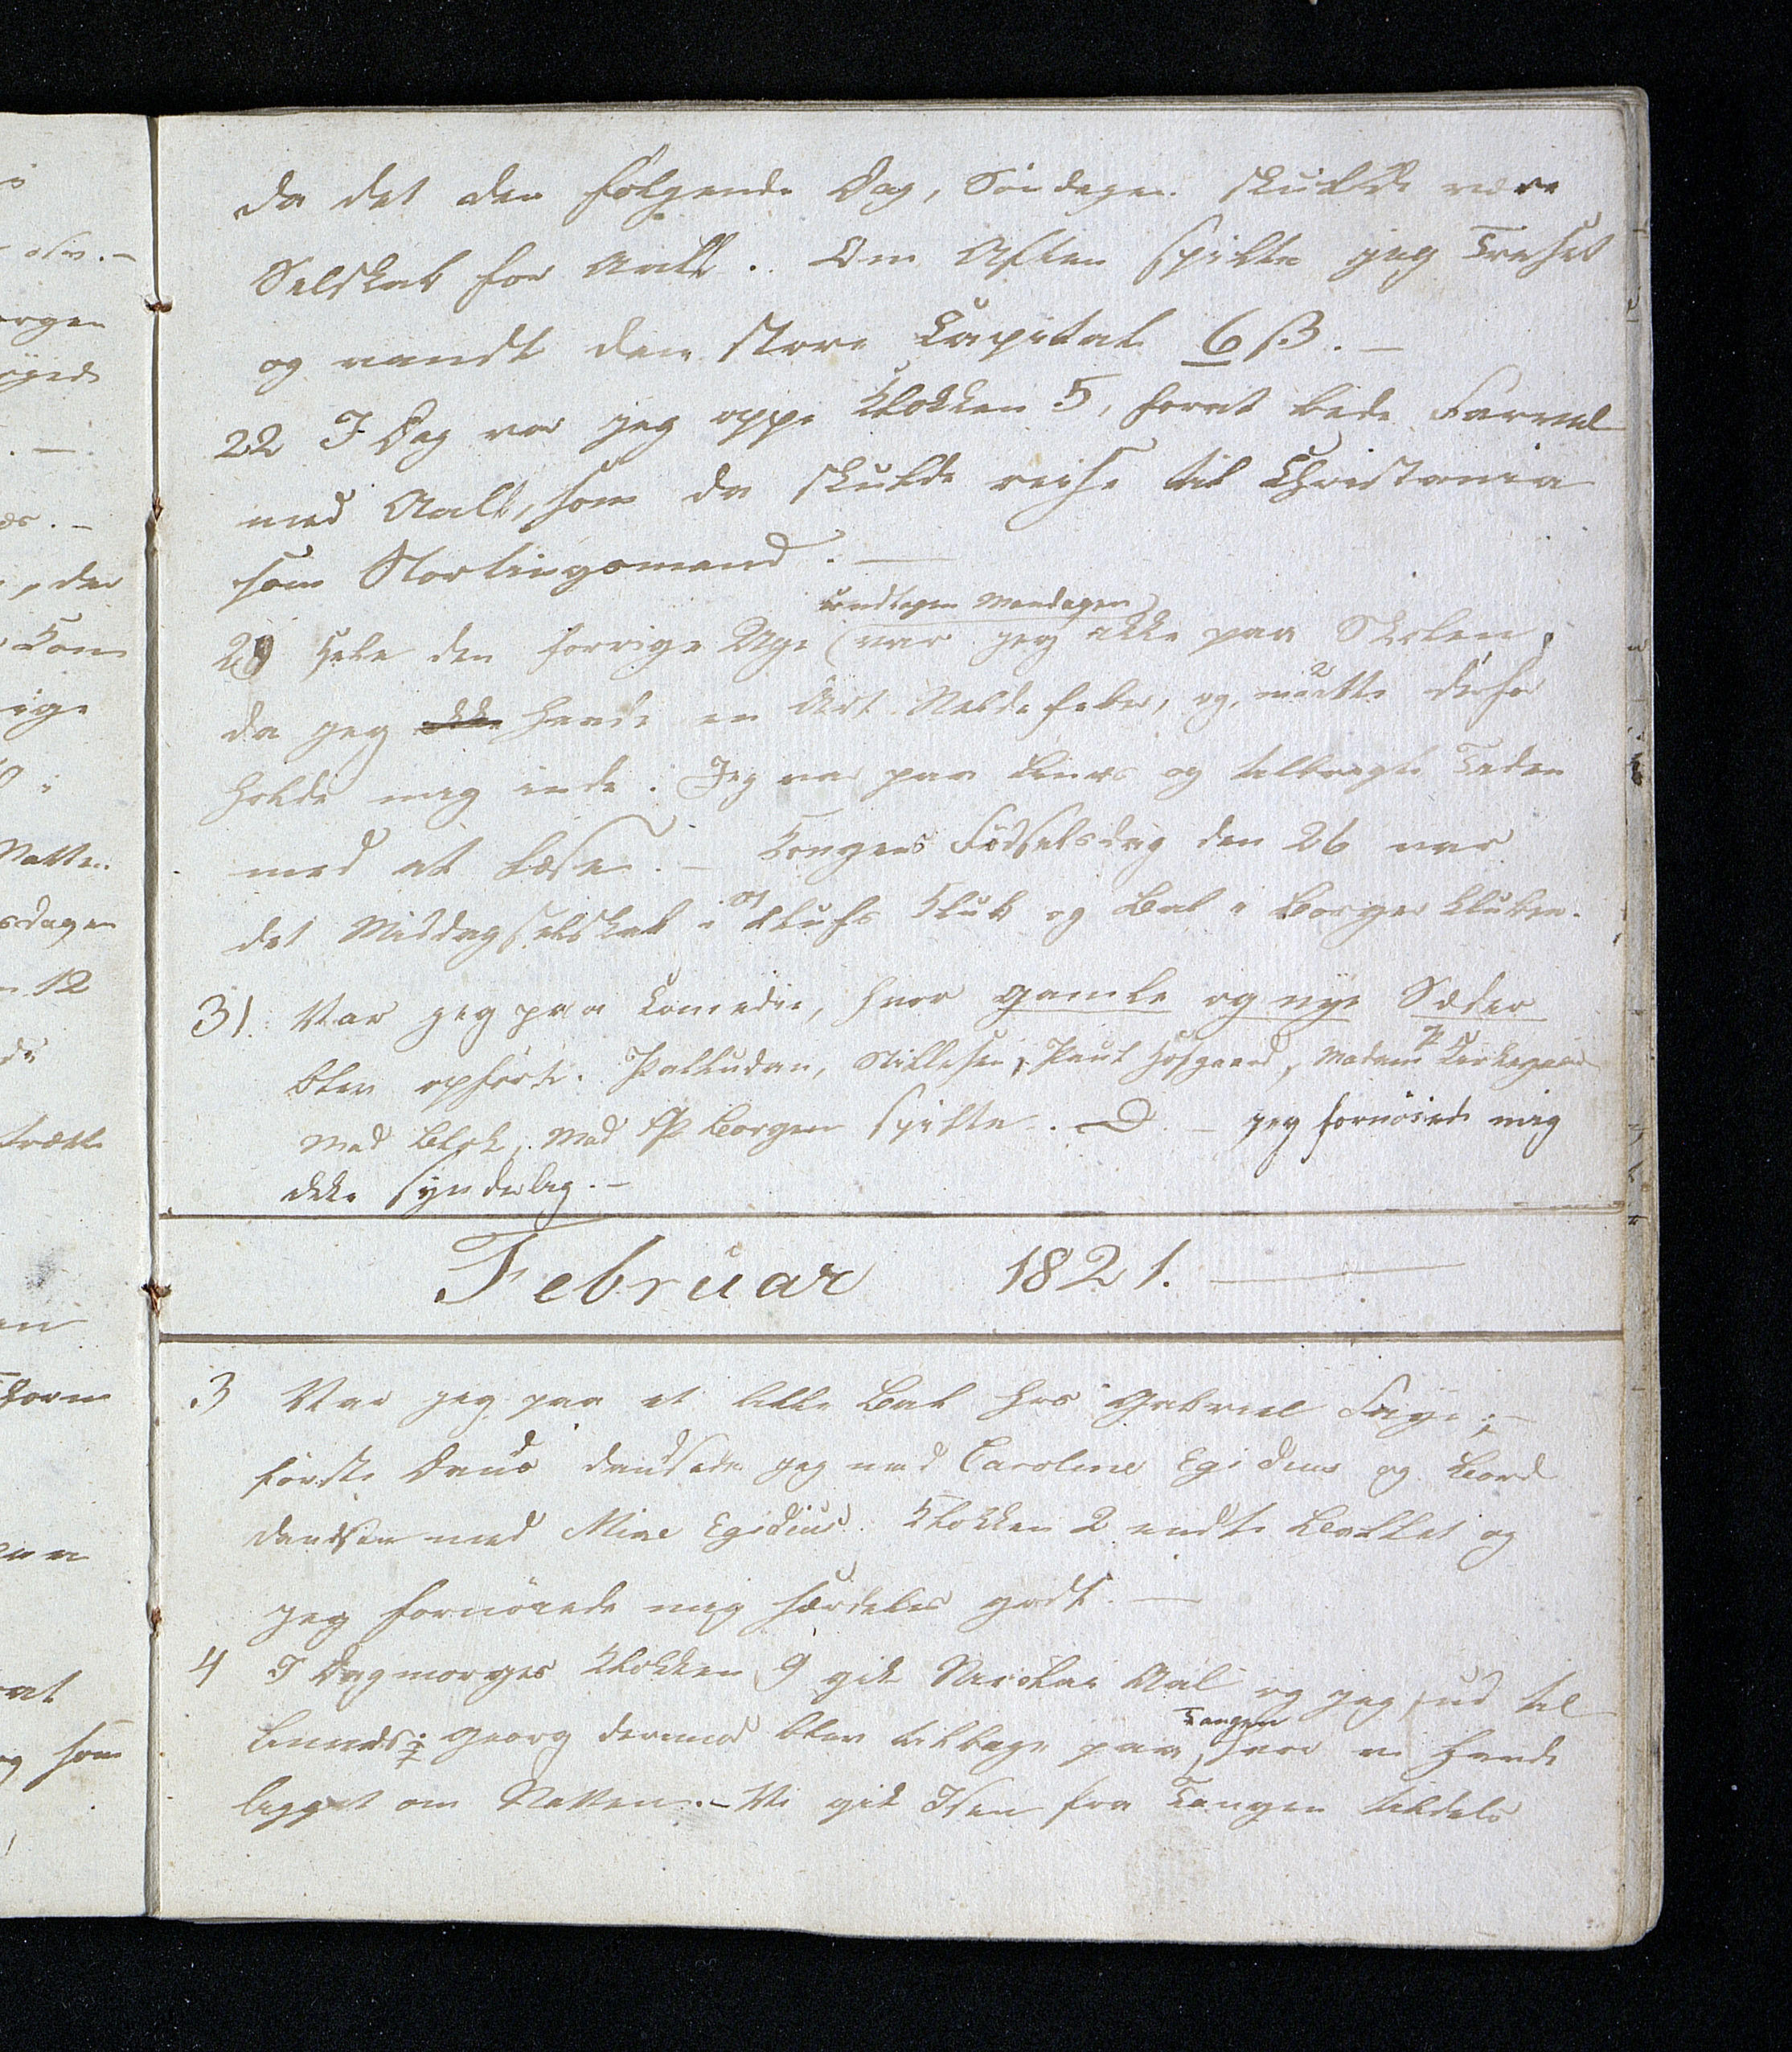 da det den følgende Dag, Søndagen skulde være
Selskab for Aall. Om Aften spilte jeg Treset
og vandt den store Capital 6 ß. —
22 I Dag var jeg oppe Klokken 5, forat bede Farvel
med Aall, som da skulde reise til Christania
som Stortingsmand. —
undtagen Mandagen
29 Hele den forrige Uge (var jeg ikke paa Skolen,
da jeg ikke havde en Art Neldefeber, og maatte derfor
holde mig inde. Jeg var paa Lunds og tilbragte Tiden
med at læse. — Kongens Fødselsdag den 26 var
det Middagsselskab i Klub og Bal i Borger Klubben.
31. Var jeg paa Comedie, hvor gamle og nye Sæder
blev opført. Palludan, Stillesen, Paul Høsgaard, Madam Kirkegaard
Mad Blok, Mad P Borgen spilte. — jeg fornøiede mig
ikke synderlig. —
Februar 1821. —
3 Var jeg paa et lille Bal hos Gabriel Faye; —
første Dans dandsede jeg med Caroline Egidius og Bord
dandsen med Mine Egidius. Klokken 2 endte Ballet og
jeg fornøiede mig særdeles godt. —
4 I Dagmorges Klokken 9 gik Nicolai Aal og jeg ud til
Lunds; Georg derimod blev tilbage paa Tangen, hvor vi havde
ligget om Natten. — Vi gik Isen fra Tangen tildels